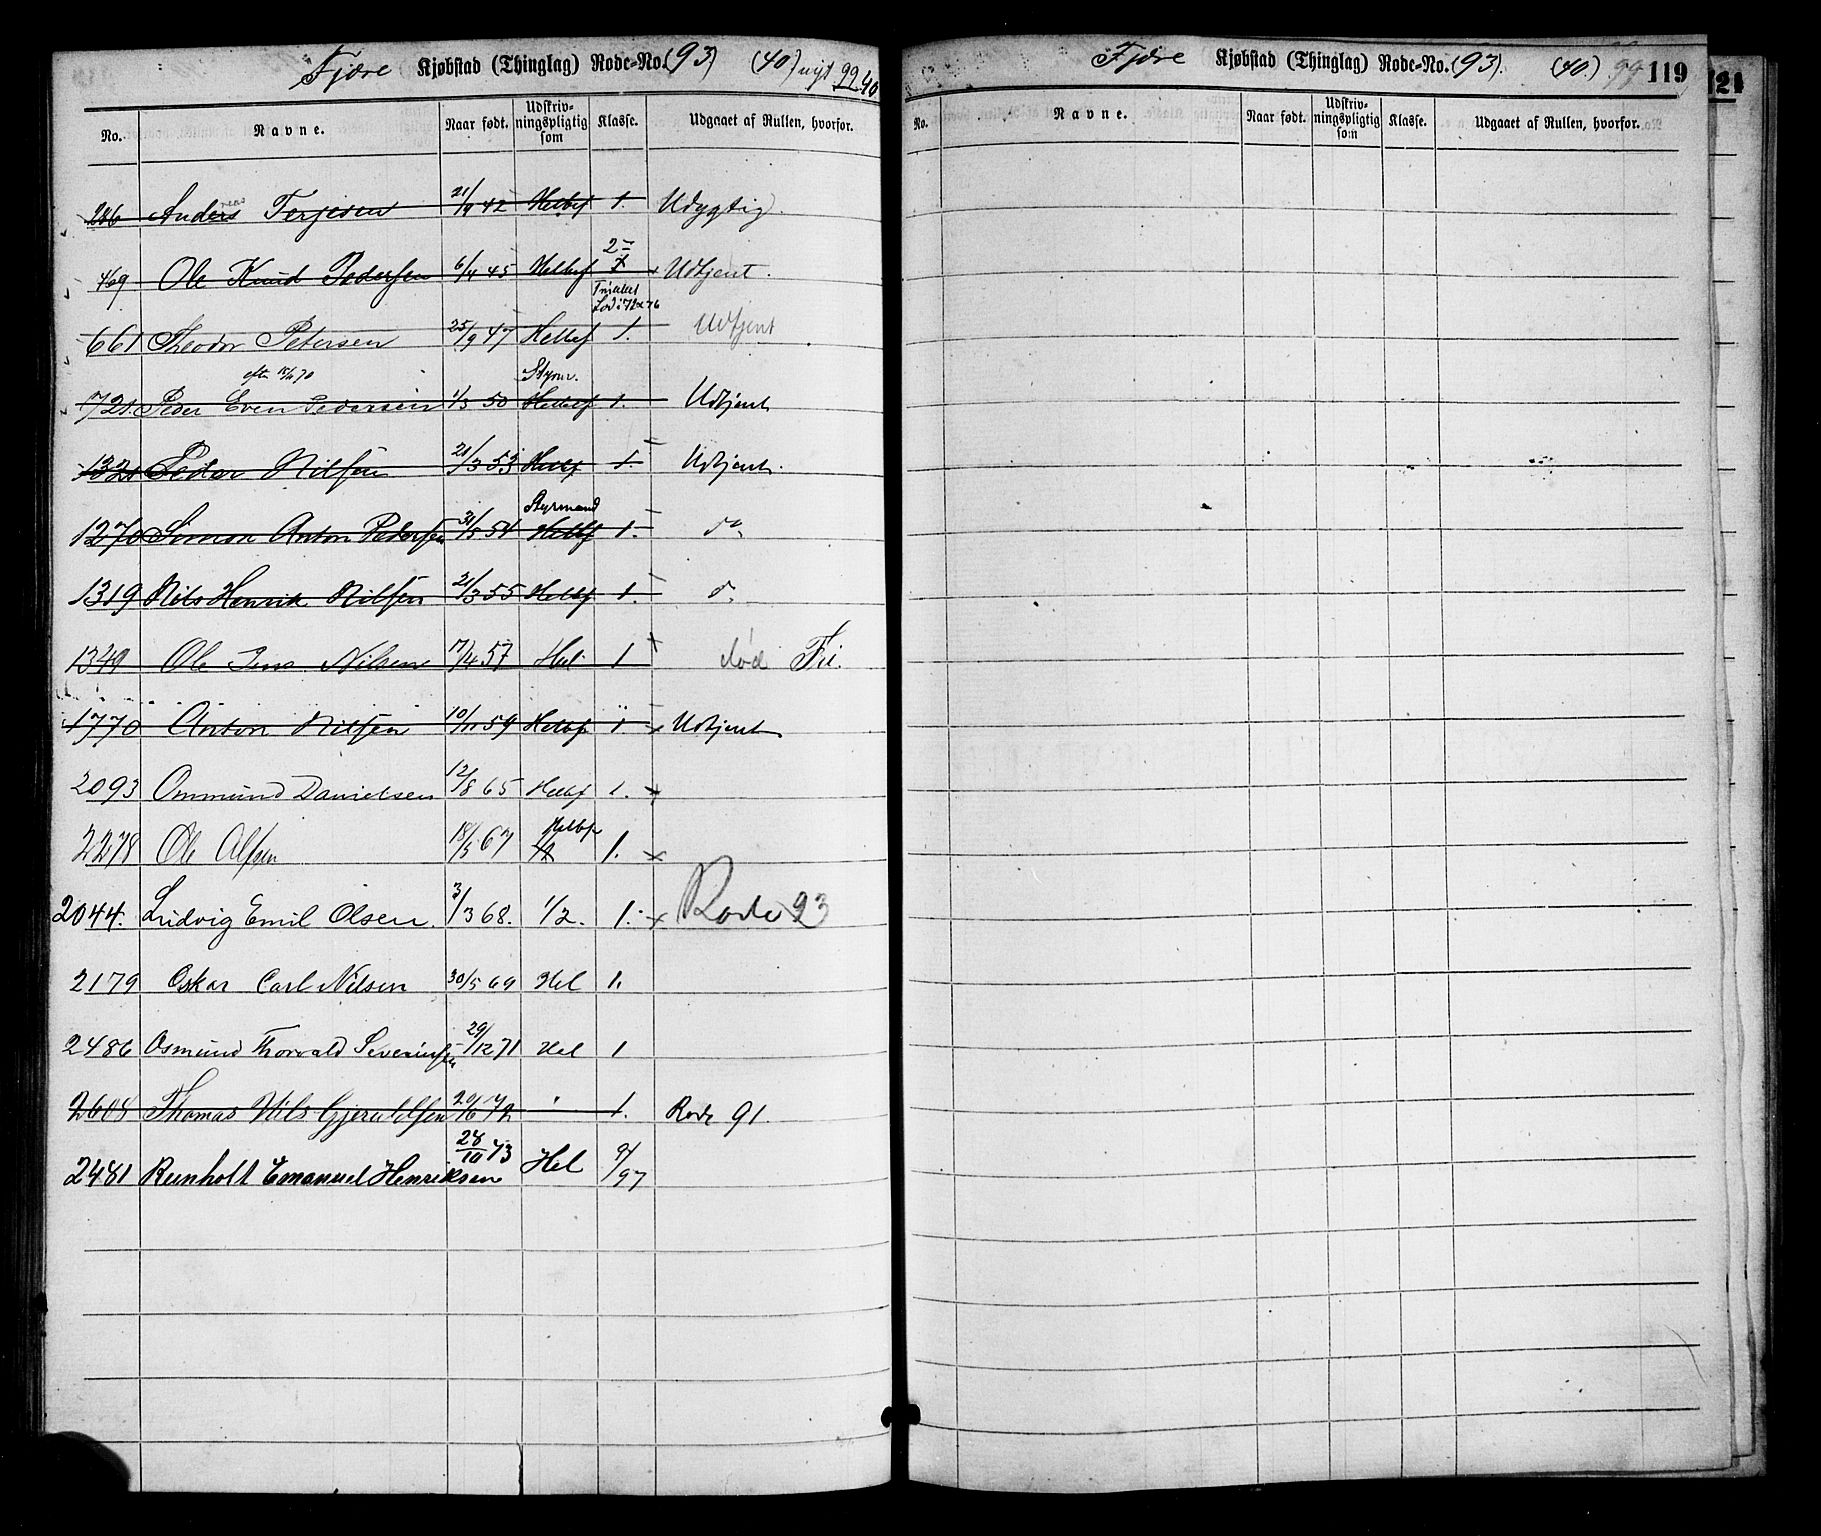 Fjære Kjøbstad (Thinglag) Rode-No. (93) (40) nyt 99 40
No. Navne. Naar født. Udskrivningspligtig som Klasse. Udgaaet af Rullen, hvorfor.
286 Anders Terjesen 21/9 42 Helbef 1. Udygtig.
2
469 Ole Knud Pedersen 6/4 45 Helbef 1 x Udtjent.
661 Theodor Petersen 25/9 47 Helbef 1. Udtjent
efter 15/11 70 Styrm.
721. Peder Even Pedersen 1/3 50 Helbef 1. Udtjent
1321 Peder Nilsen 21/3 53 Helbf 1. Udtjent.
Styrmand
1270 Simon Anton Pedersen 31/5 54 Helbf 1. do
1319 Nils Henrik Nilsen 21/3 55 Helbf 1. do
1349 Ole Jens Nilsen 17/4 57 Hel 1 x død Fri.
1770 Anton Nilsen 10/11 59 Helbf 1 x Udtjent
2093 Ommund Danielsen 12/8 65 Helbf 1. x
Helbf
2278 Ole Alfsen 18/5 67 1/2 1. x
2044. Ludvig Emil Olsen. 3/3 68. 1/2. 1. x Rode 93
2179 Oskar Carl Nilsen 30/5 69 Hel 1.
2486 Osmund Thorvald Severinsen 29/12 71 Hel 1
2608 Thomas Nils Gjeruldsen 29/6 72 " 1. Rode 91.
2481 Reinholt Emanuel Henriksen 28/10 73 Hel 9/97
Fjære Kjøbstad (Thinglag) Rode-No. (93). (40.) 99 119
No. Navne. Naar født. Udskrivningspligtig som Klasse. Udgaaet af Rullen, hvorfor.
121